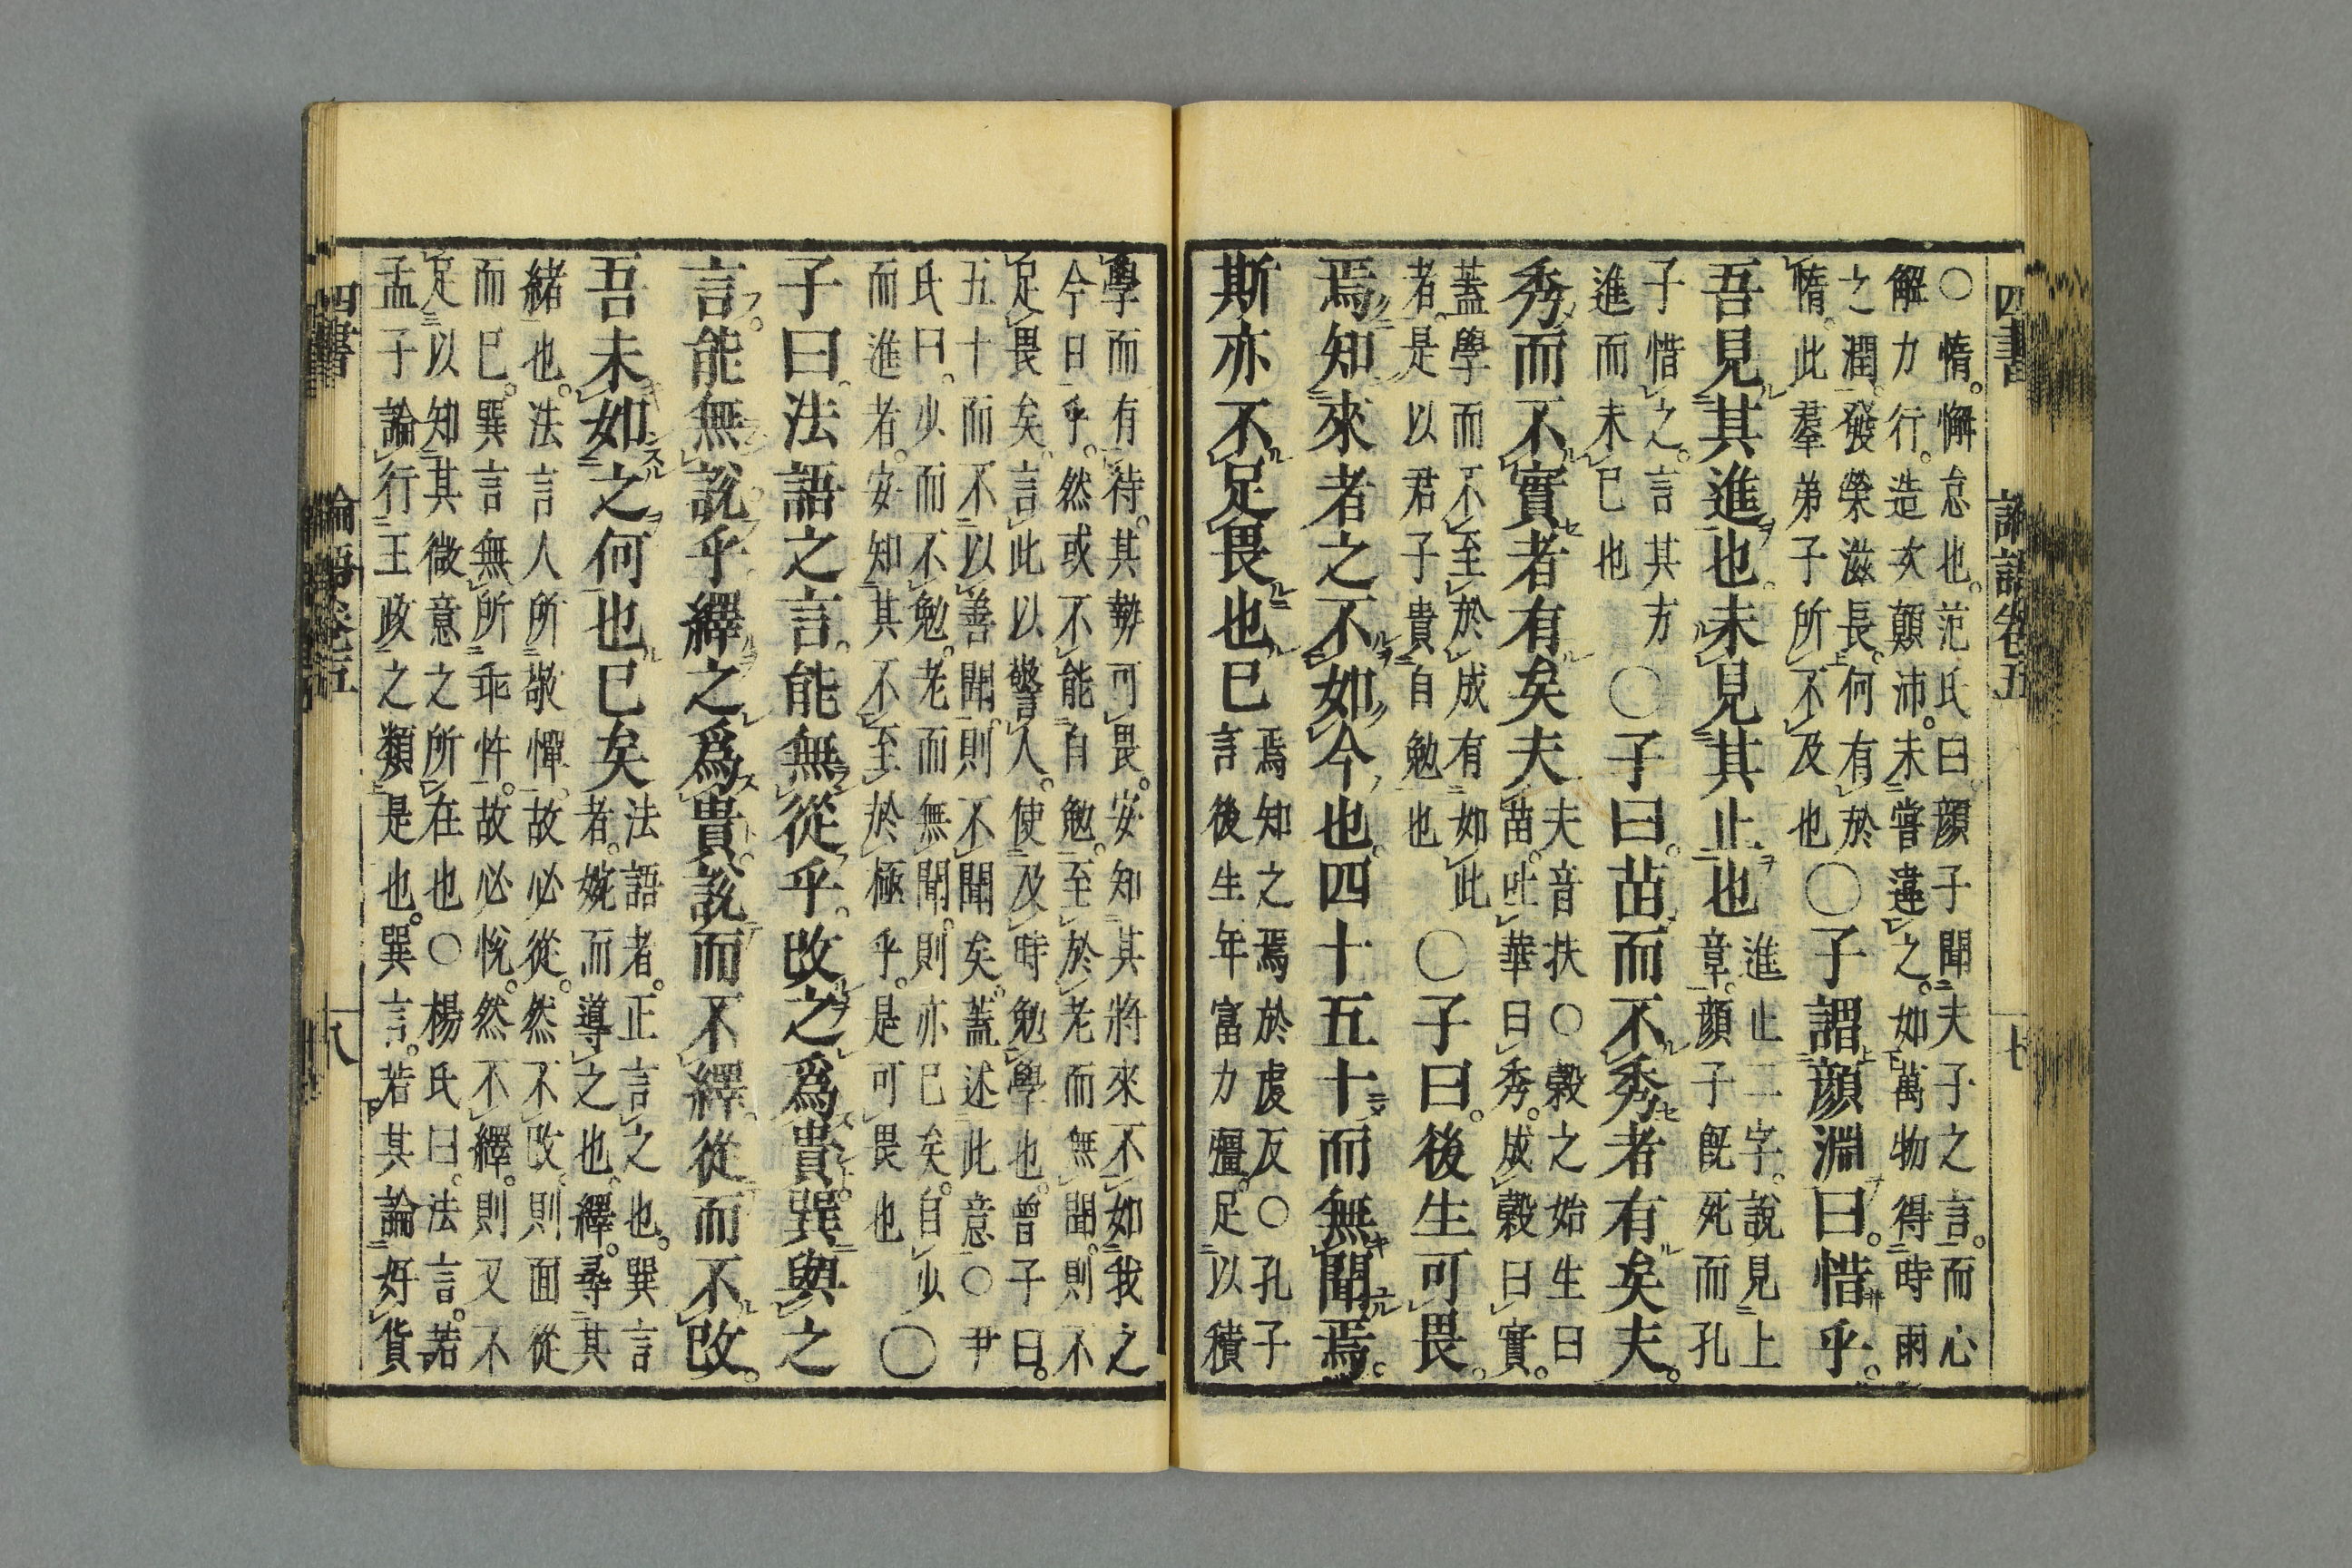 四書　論語卷五　十七
○惰。懈怠也。范氏曰。顏子聞夫子之言。而心
解力行。造次顛沛。未嘗違之。如萬物得時雨
之潤。發榮滋長。何有於
惰。此羣弟子所不及也
○子謂顏淵曰。惜乎。
吾見其進也。未見其止也
進止二字。說見上
章。顏子旣死而孔
子惜之。言其方
進而未已也
○子曰。苗而不秀者有矣夫。
秀而不實者有矣夫
夫音扶○穀之始生曰
苗。吐華曰秀。成穀曰實。
蓋學而不至於成有如此
者。是以君子貴自勉也
○子曰。後生可畏。
焉知來者之不如今也。四十五十而無聞焉。
斯亦不足畏也已
焉知之焉於虔反○孔子
言後生年富力彊。足以積
學而有待。其勢可畏。安知其將來不如我之
今日乎。然或不能自勉。至於老而無聞。則不
足畏矣。言此以警人。使及時勉學也。曾子曰。
五十而不以善聞。則不聞矣。蓋述此意○尹
氏曰。少而不勉。老而無聞。則亦已矣。自少
而進者。安知其不至於極乎。是可畏也
○
子曰。法語之言。能無從乎。改之爲貴。巽與之
言。能無說乎。繹之爲貴。說而不繹。從而不改。
吾未如之何也已矣
法語者。正言之也。巽言
者。婉而導之也。繹。尋其
緒也。法言人所敬憚。故必從。然不改。則面從
而已。巽言無所乖忤。故必悅。然不繹。則又不
足以知其微意之所在也○楊氏曰。法言。若
孟子論行王政之類是也。巽言。若其論好貨
四書　論語卷五　十八